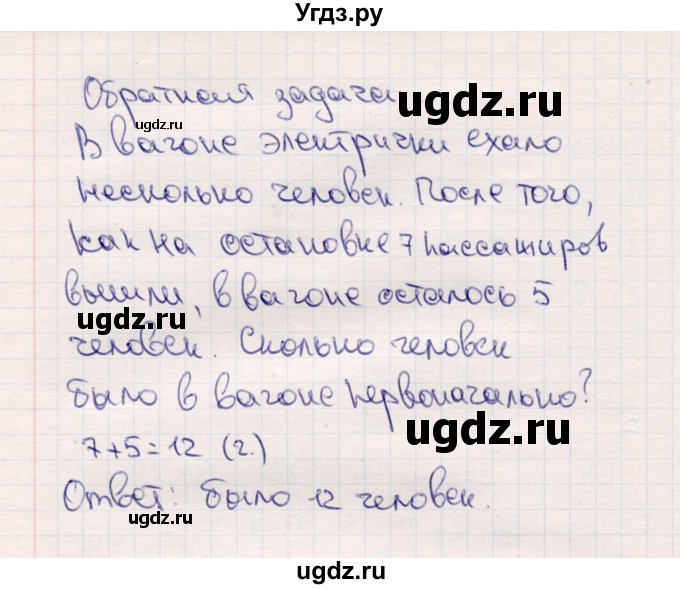 Угдз.ру
Обратная задача
ugdz.ru
ugdz.ru
В вагоне электрички ехало
несколько человек. После того,
как на остановке 7 пассажиров
вышли, в вагоне осталось 5
ugdz.ru
человек. Сколько человек
было в вагоне первоначально?
ugdz.ru
7+5=12 (ч.)
Ответ: было 12 человек.
ugdz.ru
ugdz.ru